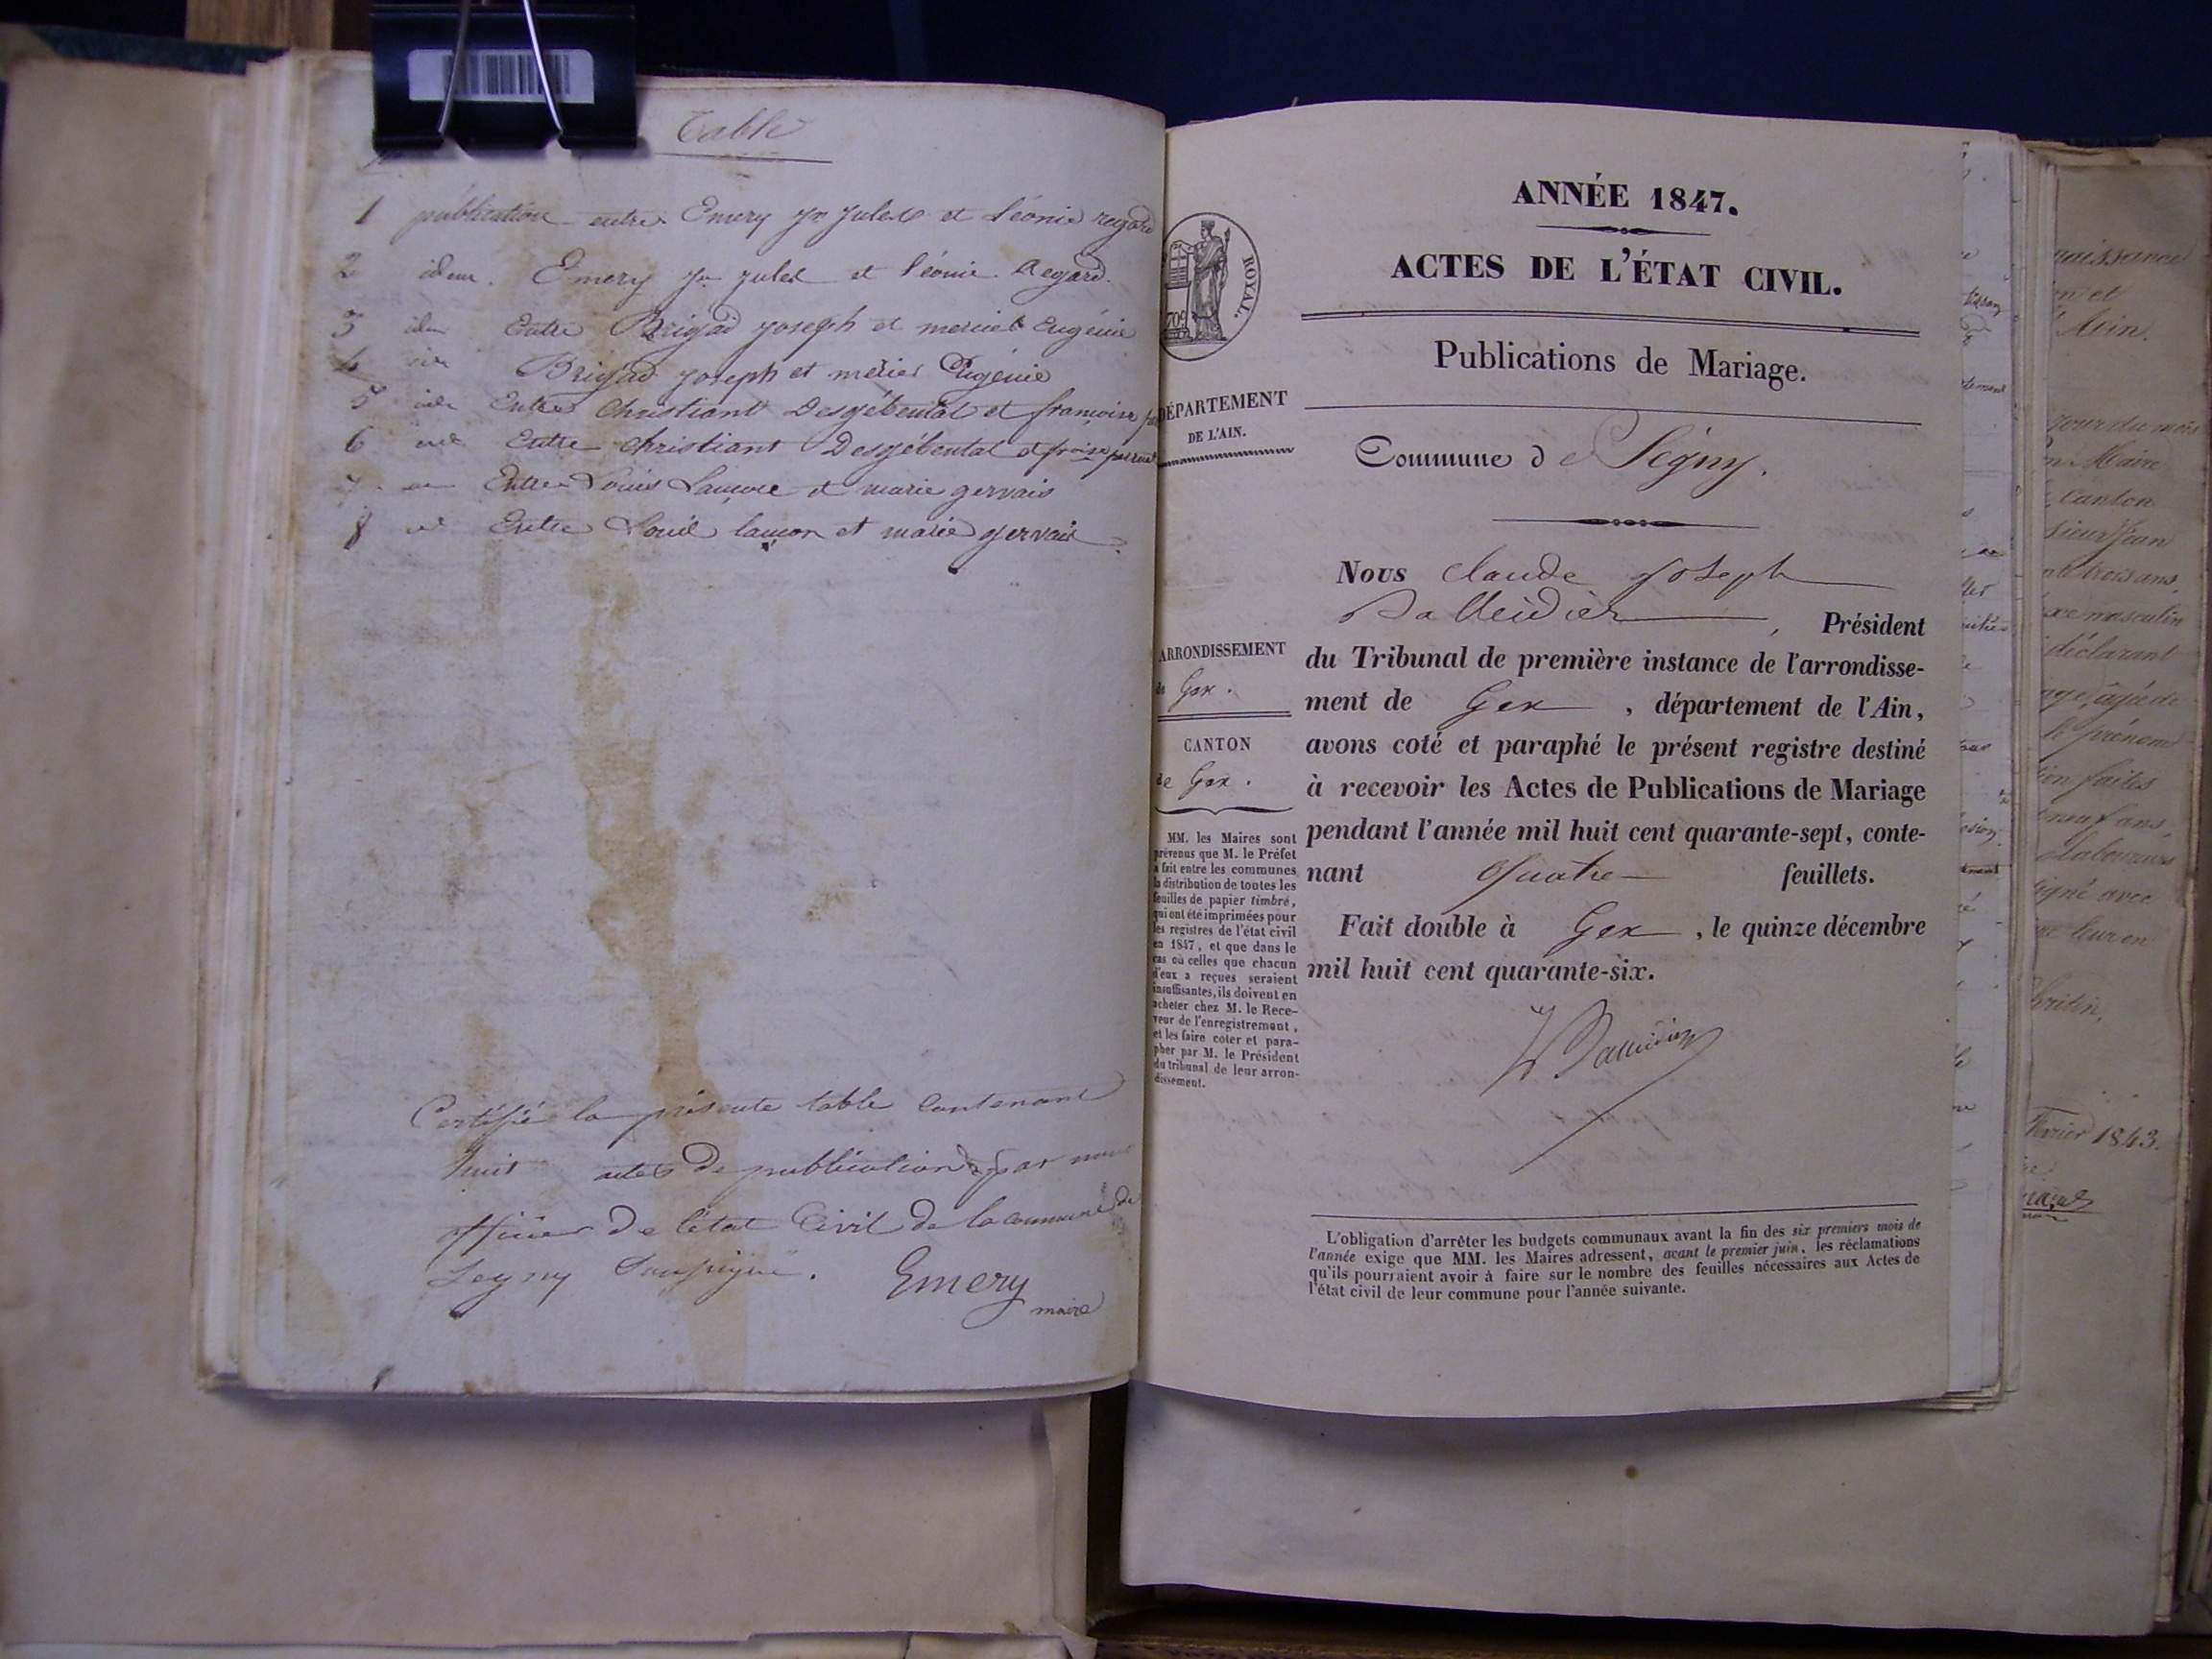 Table
1 publication entre Emery jn Jules et Léonie regard
2 idem. Emery jn jules et Léonie Regard.
3 idm Entre Brigad joseph et mercier Eugénie
4 Brigad joseph et mérier Eugénie
5 idm Entre Christiant Desgébental et françoise
6 Entre Christiant Desgébental et froise perruet
7 Entre Louis Lançon et marie gervais
8 Entre Louis lançon et marie gervais
Certifié la présente table Contenant
huit actes de publication par nous
officier De l'état Civil de la commune de
Segny Soussigné. Emery
maire
ANNÉE 1847.
ACTES DE L'ÉTAT CIVIL.
Publications de Mariage.
Commune de Ségny.
ROYAL.
709
DÉPARTEMENT
DE L'AIN.
ARRONDISSEMENT
de Gex.
CANTON
de Gex.
MM. les Maires sont
prévenus que M. le Préfet
a fait entre les communes
la distribution de toutes les
feuilles de papier timbré,
qui ont été imprimées pour
les registres de l'état civil
en 1847, et que dans le
cas où celles que chacun
d'eux a reçues seraient
insuffisantes, ils doivent en
acheter chez M. le Rece-
veur de l'enregistrement,
et les faire coter et para-
pher par M. le Président
du tribunal de leur arron-
dissement.
Nous Claude Joseph
, Président
du Tribunal de première instance de l'arrondisse-
ment de Gex , département de l'Ain,
avons coté et paraphé le présent registre destiné
à recevoir les Actes de Publications de Mariage
pendant l'année mil huit cent quarante-sept, conte-
nant Quatre feuillets.
Fait double à Gex , le quinze décembre
mil huit cent quarante-six.
L'obligation d'arrêter les budgets communaux avant la fin des six premiers mois de
l'année exige que MM. les Maires adressent, avant le premier juin, les réclamations
qu'ils pourraient avoir à faire sur le nombre des feuilles nécessaires aux Actes de
l'état civil de leur commune pour l'année suivante.
et
Ain.
jour du mois
Maire
Canton
sieur Jean
trois ans,
masculin
déclarant
âgé de
le prénom
faites
neuf ans,
Laboureur
signé avec
leur en
1843.